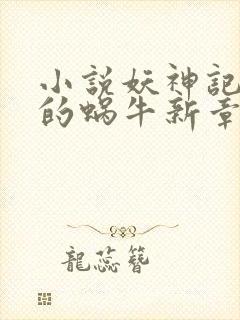 小説妖神記
的蝸牛新章
龍蕊簪